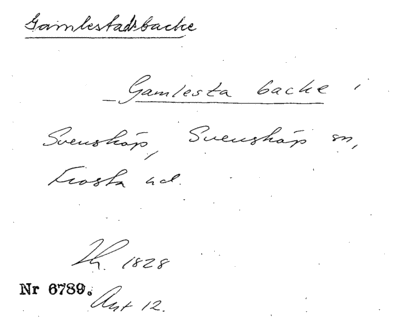 Gamlestadsbacke
Gamlesta backe i
Svensköp, Svensköp sn,
Frosta hd.
1828
Nr 6789.
Ant 12.